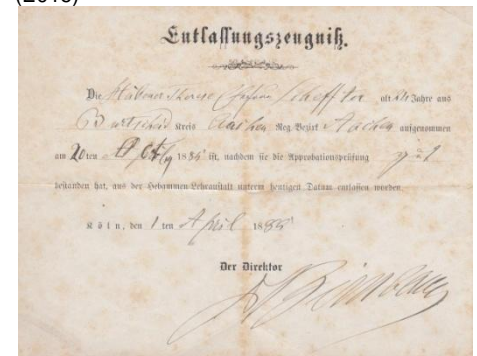 Entlassungszeugniß.
Die Therese Scheffter, alt 24 Jahre aus
Burtscheid Kreis Aachen Reg. Bezirk Aachen aufgenommen
am 20 ten 188 ist, nachdem sie die Approbationsprüfung gut
bestanden hat, aus der Hebammen-Lehranstalt unterm heutigen Datum entlassen worden.
Köln, den 1 ten April 188
Der Direktor